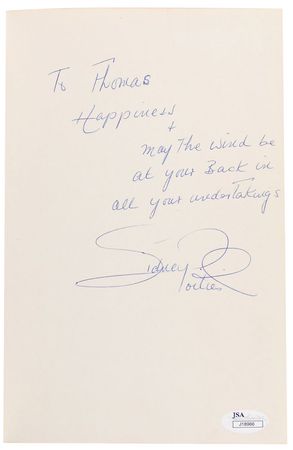 To Thomas
Happiness
+
may The wind be
at your Back in
all your undertakings
Sidney
Poitier
JSA
J18966